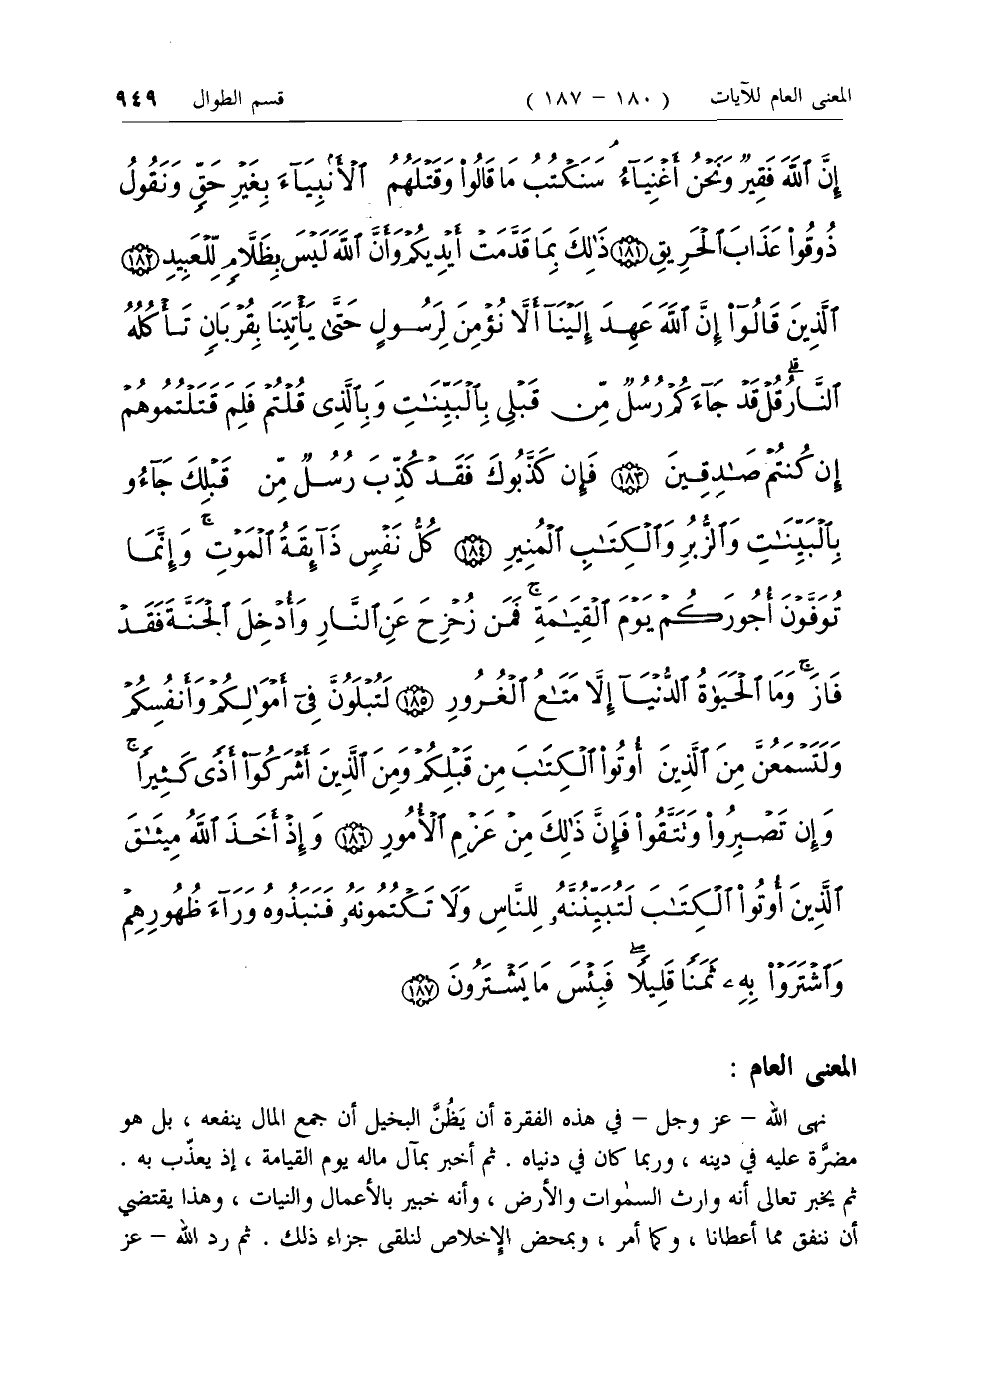 المعنى العام للآيات ( ١٨٠ – ١٨٧ ) قسم الطوال ٩٤٩
إِنَّ ٱللَّهَ فَقِيرٌ وَنَحْنُ أَغْنِيَآءُ ۘ سَنَكْتُبُ مَا قَالُوا۟ وَقَتْلَهُمُ ٱلْأَنۢبِيَآءَ بِغَيْرِ حَقٍّ وَنَقُولُ
ذُوقُوا۟ عَذَابَ ٱلْحَرِيقِ ﴿١٨١﴾ ذَٰلِكَ بِمَا قَدَّمَتْ أَيْدِيكُمْ وَأَنَّ ٱللَّهَ لَيْسَ بِظَلَّامٍ لِّلْعَبِيدِ ﴿١٨٢﴾
ٱلَّذِينَ قَالُوٓا۟ إِنَّ ٱللَّهَ عَهِدَ إِلَيْنَآ أَلَّا نُؤْمِنَ لِرَسُولٍ حَتَّىٰ يَأْتِيَنَا بِقُرْبَانٍ تَأْكُلُهُ
ٱلنَّارُ ۗ قُلْ قَدْ جَآءَكُمْ رُسُلٌ مِّن قَبْلِى بِٱلْبَيِّنَٰتِ وَبِٱلَّذِى قُلْتُمْ فَلِمَ قَتَلْتُمُوهُمْ
إِن كُنتُمْ صَٰدِقِينَ ﴿١٨٣﴾ فَإِن كَذَّبُوكَ فَقَدْ كُذِّبَ رُسُلٌ مِّن قَبْلِكَ جَآءُو
بِٱلْبَيِّنَٰتِ وَٱلزُّبُرِ وَٱلْكِتَٰبِ ٱلْمُنِيرِ ﴿١٨٤﴾ كُلُّ نَفْسٍ ذَآئِقَةُ ٱلْمَوْتِ ۚ وَإِنَّمَا
تُوَفَّوْنَ أُجُورَكُمْ يَوْمَ ٱلْقِيَٰمَةِ ۚ فَمَن زُحْزِحَ عَنِ ٱلنَّارِ وَأُدْخِلَ ٱلْجَنَّةَ فَقَدْ
فَازَ ۗ وَمَا ٱلْحَيَوٰةُ ٱلدُّنْيَآ إِلَّا مَتَٰعُ ٱلْغُرُورِ ﴿١٨٥﴾ لَتُبْلَوُنَّ فِىٓ أَمْوَٰلِكُمْ وَأَنفُسِكُمْ
وَلَتَسْمَعُنَّ مِنَ ٱلَّذِينَ أُوتُوا۟ ٱلْكِتَٰبَ مِن قَبْلِكُمْ وَمِنَ ٱلَّذِينَ أَشْرَكُوٓا۟ أَذًى كَثِيرًا ۚ
وَإِن تَصْبِرُوا۟ وَتَتَّقُوا۟ فَإِنَّ ذَٰلِكَ مِنْ عَزْمِ ٱلْأُمُورِ ﴿١٨٦﴾ وَإِذْ أَخَذَ ٱللَّهُ مِيثَٰقَ
ٱلَّذِينَ أُوتُوا۟ ٱلْكِتَٰبَ لَتُبَيِّنُنَّهُۥ لِلنَّاسِ وَلَا تَكْتُمُونَهُۥ فَنَبَذُوهُ وَرَآءَ ظُهُورِهِمْ
وَٱشْتَرَوْا۟ بِهِۦ ثَمَنًا قَلِيلًا ۖ فَبِئْسَ مَا يَشْتَرُونَ ﴿١٨٧﴾
المعنى العام :
نهى الله – عز وجل – في هذه الفقرة أن يَظُنَّ البخيل أن جمع المال ينفعه ، بل هو
مضرَّة عليه في دينه ، وربما كان في دنياه . ثم أخبر بمآل ماله يوم القيامة ، إذ يعذّب به .
ثم يخبر تعالى أنه وارث السمٰوات والأرض ، وأنه خبير بالأعمال والنيات ، وهذا يقتضي
أن ننفق مما أعطانا ، وكما أمر ، وبمحض الإخلاص لنلقى جزاء ذلك . ثم رد الله – عز